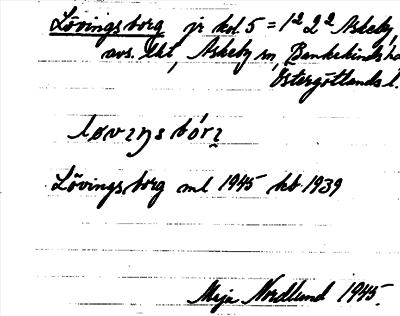 Lövingsborg jr kol. 5 = 1² 2² Askeby,
avs. lht, Askeby sn, Bankekinds hd
Östergötlands l.
Lövingsborg ml 1945 kb 1939
Maja Nordlund 1945.